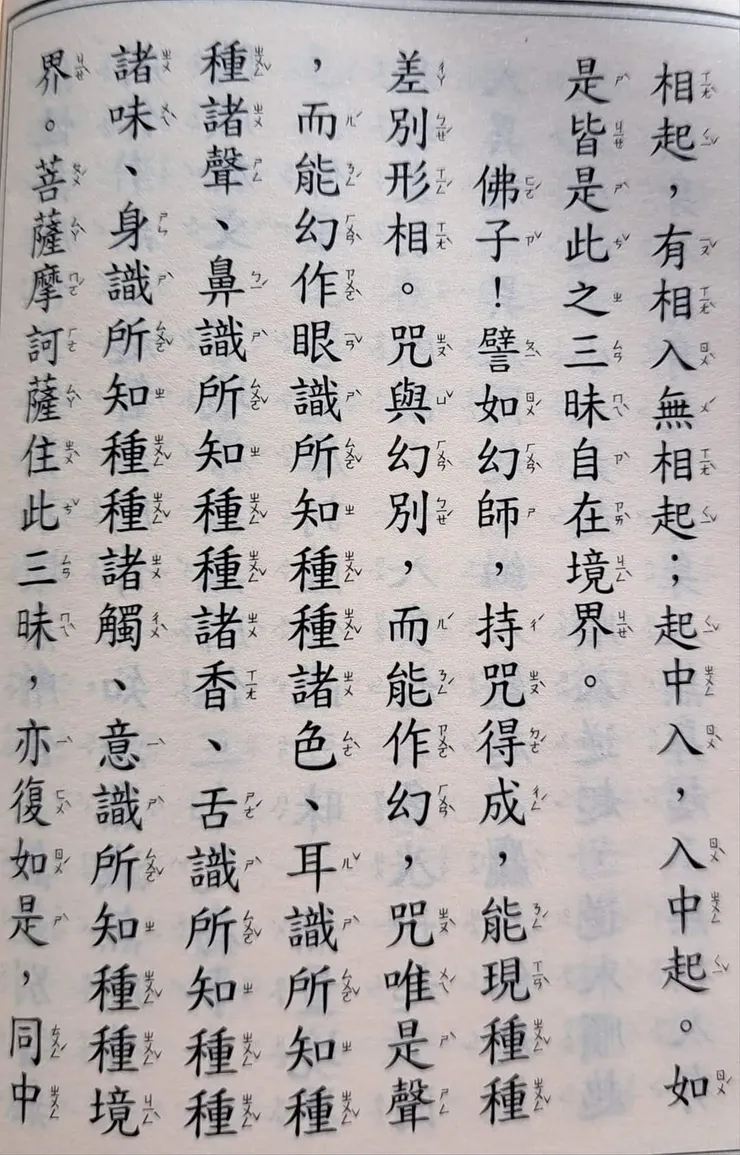 相起，有相入無相起；起中入，入中起。如
是皆是此之三昧自在境界。
佛子！譬如幻師，持咒得成，能現種種
差別形相。咒與幻別，而能作幻，咒唯是聲
，而能幻作眼識所知種種諸色、耳識所知種
種諸聲、鼻識所知種種諸香、舌識所知種種
諸味、身識所知種種諸觸、意識所知種種境
界。菩薩摩訶薩住此三昧，亦復如是，同中